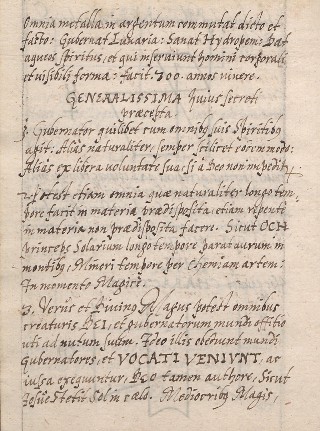 Omnia metalla in argentum commutat dicto et
facto: Gubernat Lunaria: Sanat Hydropem: Dat
aqueos spiritus, et qui inserviunt homini corporali
et visibili forma: facit 300. annos vivere.
GENERALISSIMA huius secreti
præcepta.
1. Gubernator quilibet cum omnibus suis Spiritibus
agit: Alias naturaliter, semper scilicet eodem modo:
Alias ex libera voluntate sua, si à Deo non impedit
2. Potest etiam omnia quæ naturaliter longo tem-
pore facit in materia prædisposita, etiam repente
in materia non prædisposita facere. Sicut OCH
princeps Solarium longo tempore parat aurum in
montibus, Minori tempore per Chemiam artem:
In momento Magicè.
3. Verus et Divinus Magus potest omnibus
creaturis DEI, et gubernatorum mundi officio
uti ad nutum suum. Ideo illis obediunt mundi
Gubernatores, et VOCATI VENIUNT, ac
iussa exequuntur, DEO tamen authore, Sicut
Josue stetit Sol in cælo. Mediocribus Magis,